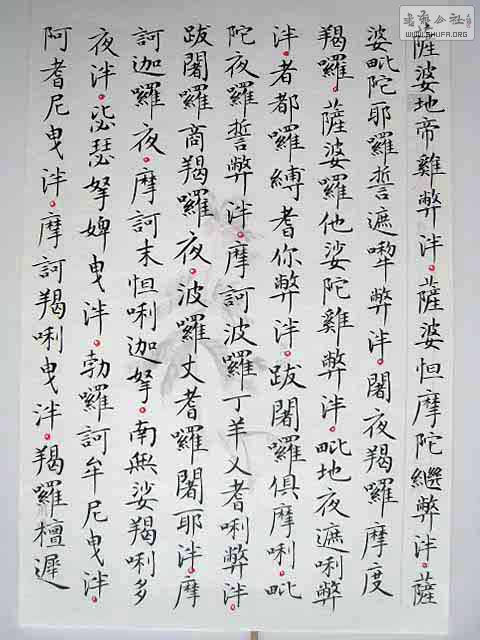 薩婆地帝雞弊泮。薩婆怛摩陀繼弊泮。薩
婆毗陀耶囉誓遮㘑弊泮。闍夜羯囉摩度
羯囉。薩婆囉他娑陀雞弊泮。毗地夜遮唎弊
泮。者都囉縛耆你弊泮。跋闍囉俱摩唎。毗
陀夜囉誓弊泮。摩訶波囉丁羊乂耆唎弊泮。
跋闍囉商羯囉夜。波囉丈耆囉闍耶泮。摩
訶迦囉夜。摩訶末怛唎迦拏。南無娑羯唎多
夜泮。毖瑟拏婢曳泮。勃囉訶牟尼曳泮。
阿耆尼曳泮。摩訶羯唎曳泮。羯囉檀遲
书法公社
WWW.SHUFA.ORG